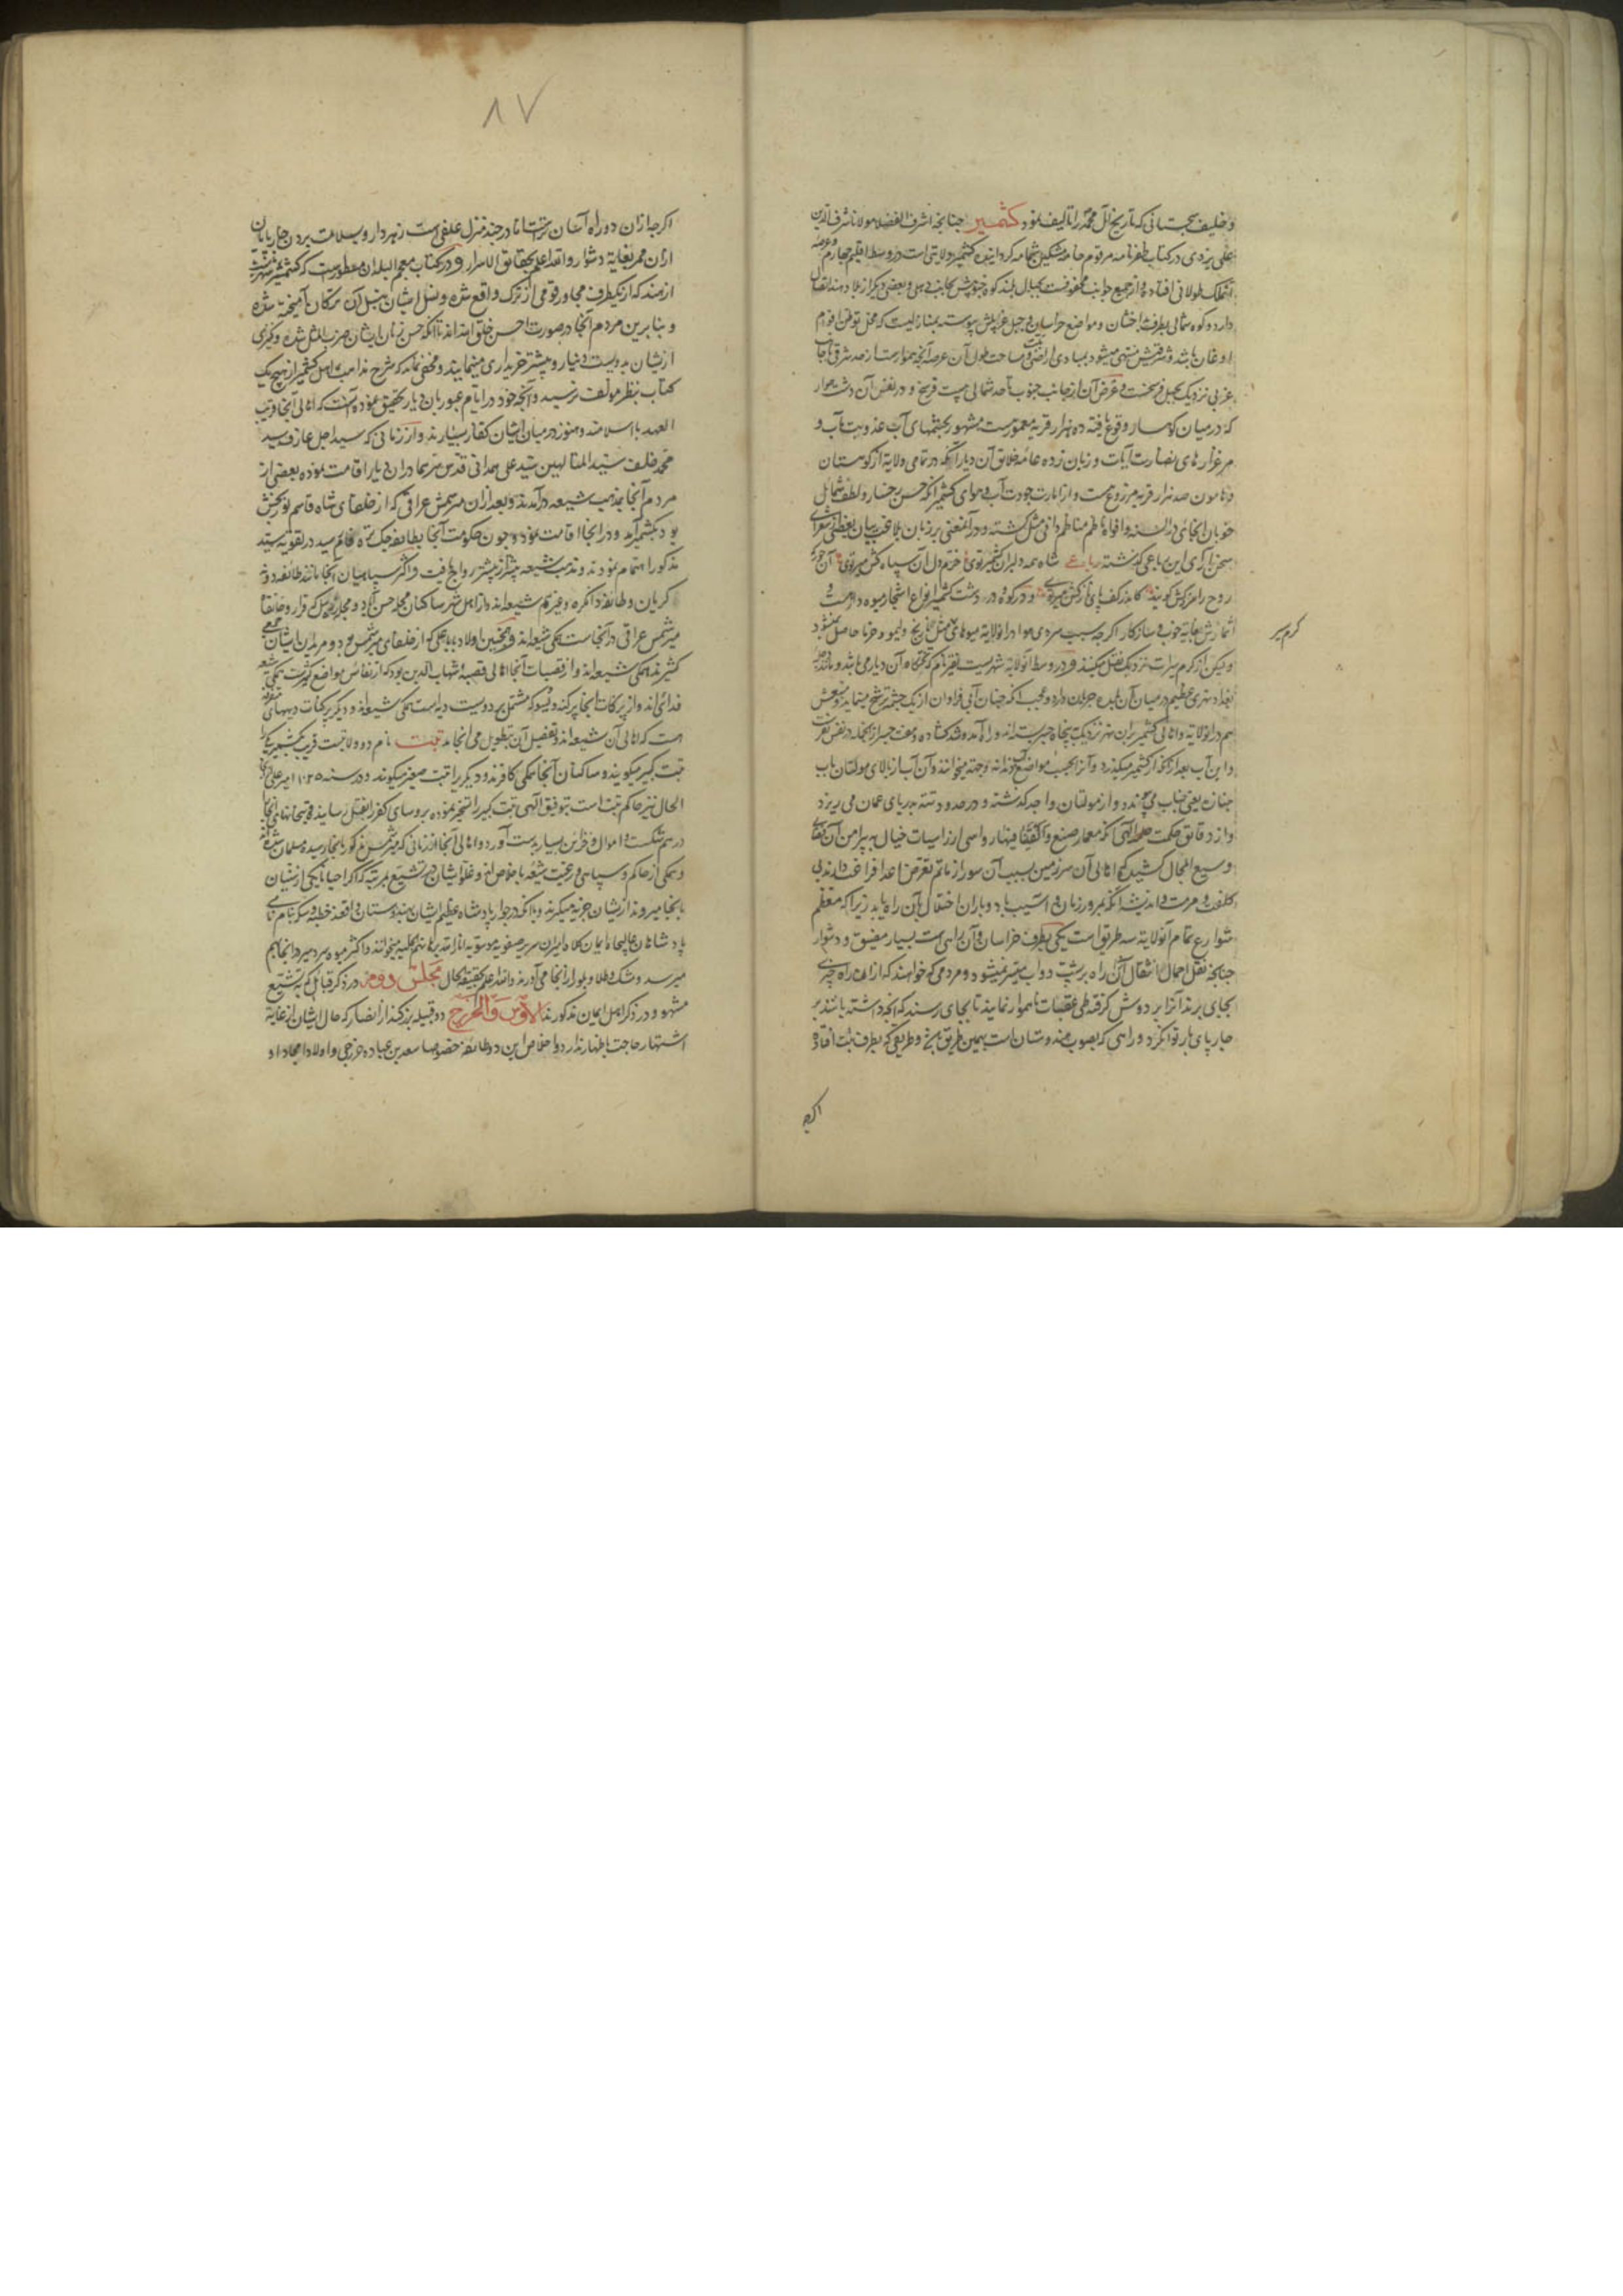 و خلیفه سجستانی که تاریخ آل محمد را تألیف نمود کشمیر چنانچه اشرف الفضلا مولانا شرف الدین
علی یزدی در کتاب ظفرنامه مرقوم خامه مشکین شمامه گردانیده کشمیر ولایتی است در وسط اقلیم چهارم و عرصه
آن مملکت طولانی افتاده و از جمیع جوانب محفوفست بجبال بلند کوه جنوبیش بجانب دهلی و بعضی دیگر از بلاد هند اتصال
دارد و کوه شمالی بطرف بدخشان و مواضع خراسان و جبل غربیش پیوسته بمنازلیست که محل توطن اقوام
اوغان باشد و شرقیش منتهی میشود بمبادی اراضی تبت و مساحت طول آن عرصه آنچه هموارست از حد شرقی تا جانب
غربی نزدیک بچهل فرسخست و عرض آن از جانب جنوب تا حد شمالی بیست فرسخ و در نفس آن دشت هموار
که در میان کوهسار وقوع یافته ده هزار قریه معمورست مشهور بچشمهای آب عذوبت مآب و
مرغزارهای نضارت آیات و زبان زده عامه خلایق آن دیار آنکه در تمامی ولایة از کوهستان
و هامون صد هزار قریه مزروع هست و از امارت جودت آب و هوای کشمیر آنکه حسن رخسار و لطف شمائل
خوبان آنجای در السنه و افواه ناظم مناظم دانی مثل گشته و در آن معنی بر زبان بلاغت بیان بعضی شعرای
سخن آرای این رباعی گذشته رباعی شاه همه دلبران کشمیر توی خرم دل آن سپاه کش میر توی آن حور که
روح را عزیزش گویند کاندر کف پای نازکش میر توی و در کوه و در و دشت کشمیر انواع اشجار میوه دار هست و
اثمارش بغایة خوب و سازگار اگر چه سبب سردی هوا در آن ولایة میوهای مثل نارنج و لیمو و خرما حاصل نمیشود
ولیکن از گرم سیرات نزدیک نقل میکنند و در وسط آن ولایة شهریست نغر نام که تختگاه آن دیار می باشد و مانند دجله
بغداد نهری عظیم در میان آن بلده جریان دارد و عجب آنکه چنان آبی فراوان از یک چشمه ترشح مینماید و منبعش
هم در آن ولایة و اهالی کشمیر بران نهر نزدیک بپنجاه جسر بسته اند و راه آمد و شد گشاده و هفت جسر از آنجمله در نفس نغرست
و این آب بعد از آنکه از کشمیر میگذرد و آنرا بحسب مواضع آب دندانه و جمد میخوانند و آن آب از بالای مولتان به آب
جناره یعنی جناب می پیوندد و از مولتان و اجه گذشته و در حدود تته بدریای عمان می ریزد
و از دقایق حکمت الهی آنکه معمار صنع و القینا فیها رواسی از راسیات جبال بپیرامن آن بقعه
وسیع المجال کشیده که اهالی آن سرزمین بسبب آن سور از ماتم تعرض اعدا فراغت دارند بی
کلفت مرمت و اندیشه آنکه بمرور زمان و آسیب باد و باران اختلال بآن راه یابد زیرا که معظم
شوارع تمام آن ولایة سه طریق است یکی بطرف خراسان و آن راهی است بسیار مضیق و دشوار
چنانچه نقل احمال و اثقال از آن راه بر پشت دواب میسر نمیشود و مردمی که خواهند که از آن راه چیزی
بجای برند آنرا بر دوش گرفته طی عقبات ناهموار نمایند تا بجای رسند که آنچه داشته باشند بر
چارپای بار توان کرد و راهی که بصوب هندوستان است بهمین طریق باشد و طریقی که بطرف تبت افتاده
گرم سیر
اگرچه
۸۷
اگرچه از آن دو راه آسان ترست اما در چند منزل علفی است زهردار و بسلامت بردن چارپایان
از آن ممر بغایة دشوار والله اعلم بحقایق الاسرار و در کتاب معجم البلدان مسطورست که کشمیر شهریست
از هند که از یکطرف مجاور قومی از ترک واقع شده و نسل ایشان بنسل آن ترکان آمیخته شده
و بنابرین مردم آنجا در صورت احسن خلق الله اند تا آنکه حسن زنان ایشان ضرب المثل شده و کنیزی
از ایشان بدویست دینار و بیشتر خریداری مینمایند و مخفی نماند که شرح مذاهب اهل کشمیر از هیچ یک
کتاب بنظر مؤلف نرسیده و آنچه خود در ایام عبور بآن دیار تحقیق نموده آنست که اهالی آنجا قریب
العهد باسلامند و هنوز در میان ایشان کفار بسیارند و از زمانی که سید اجل عارف سید
محمد خلف سید المتالهین سید علی همدانی قدس سرهما در آن دیار اقامت نموده بعضی از
مردم آنجا بمذهب شیعه درآمدند و بعد از آن میر شمس عراقی که از خلفای شاه قاسم نوربخش
بود بکشمیر آمد و در آنجا اقامت نموده و چون حکومت آنجا بطایفه چک تره کام رسید در تقویة سید
مذکور اهتمام نمودند و مذهب شیعه بیشتر از پیشتر رواج یافت و اکثر سپاهیان آنجا مانند طایفه دو
کریان و طایفه دانکره و غیرهم شیعه اند و از اهل شهر ساکنان محله حسن آباد و محله جدیبل که قرار و خانقاه
میر شمس عراقی در آنجاست همگی شیعه اند و همچنین اولاد بابا علی که از خلفای میر شمس بود و مریدان ایشان جمعی
کثیرند همگی شیعه اند و از قصبات آنجا اهالی قصبه شهاب الدین پور که از نفایس مواضع کشمیرست همگی شیعه
فدائی اند و از پرکنات آنجا پرکنه بسوکه مشتمل بر دویست دیه است همگی شیعه اند و دیگر پرکنات دیههای متفرقه
هست که اهالی آن شیعه اند و تفصیل آن بتطویل می انجامد تبت نام دو ولایت است قریب بکشمیر یکی را
تبت کبیر میگویند و ساکنان آنجا همگی کافرند و دیگریرا تبت صغیر میگویند و در سنه ۱۰۲۵ امیر علی
الحال نیز حاکم تبت است بتوفیق الهی تبت کبیر را تسخیر نموده رؤسای کفر را بقتل رسانیده و بتخانهای آنجا
درهم شکست و اموال و خزاین بسیار بدست آورد و اهالی آنجا از زمانی که میر شمس مذکور بآنجا رسیده مسلمان شده اند
و همگی از حاکم و سپاهی و رعیت شیعه با خلاص اند و غلو ایشان در تشیع بمرتبه که اگر احیانا یکی از سنیان
بآنجا میرود از ایشان جزیه میگیرند و با آنکه در جوار پادشاه عظیم الشان هندوستان واقعند خطبه و سکه بنام نامی
پادشاهان عالیجاه ایمان کلاه ایران سریر صفویه موسویه انار الله برهانهم الجلیه میخوانند و اکثر میوه سردسیر در آنجا بهم
میرسد و مشک و طلا و بلور از آنجا می آورند والله اعلم بحقیقة الحال مجلس دوم در ذکر قبائل که بتشیع
مشهور و در ذکر اهل ایمان مذکورند الاوس والخزرج دو قبیله بزرگند از انصار که حال ایشان از غایة
اشتهار حاجت باظهار ندارد و اخلاص این دو طایفه خصوصا سعد بن عباده خزرجی و اولاد امجاد او